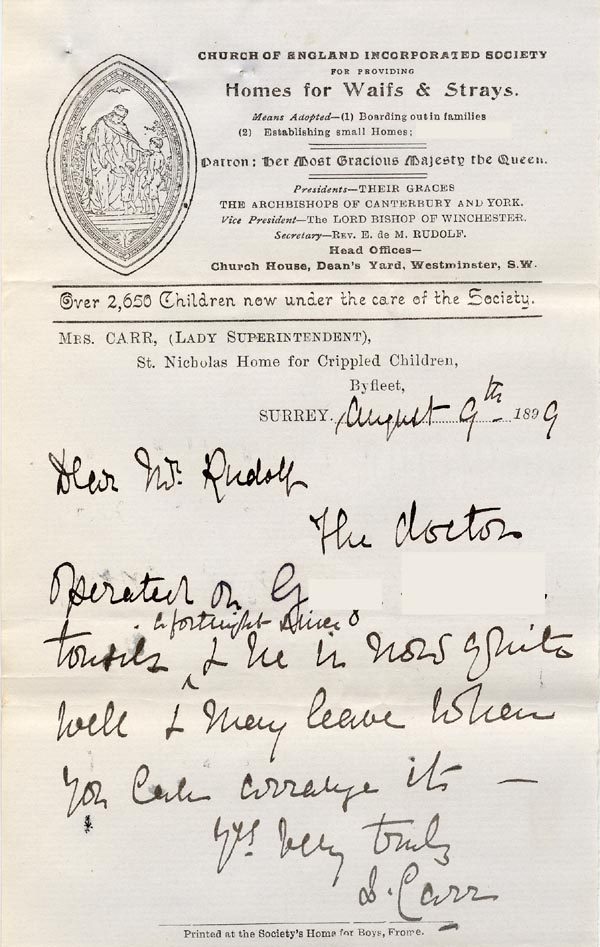 CHURCH OF ENGLAND INCORPORATED SOCIETY
FOR PROVIDING
Homes for Waifs & Strays.
Means Adopted—(1) Boarding out in families
(2) Establishing small Homes;
Patron: Her Most Gracious Majesty the Queen.
Presidents—THEIR GRACES
THE ARCHBISHOPS OF CANTERBURY AND YORK.
Vice President—The LORD BISHOP OF WINCHESTER.
Secretary—REV. E. de M. RUDOLF.
Head Offices—
Church House, Dean's Yard, Westminster, S.W.
Over 2,650 Children now under the care of the Society.
MRS. CARR, (LADY SUPERINTENDENT),
St. Nicholas Home for Crippled Children,
Byfleet,
SURREY. August 9th 1899
Dear Mr. Rudolf
The doctor
operated on G
a fortnight since
tonsils & he is now quite
well & may leave when
you can arrange it —
Yrs. very truly
S. Carr
Printed at the Society's Home for Boys, Frome.